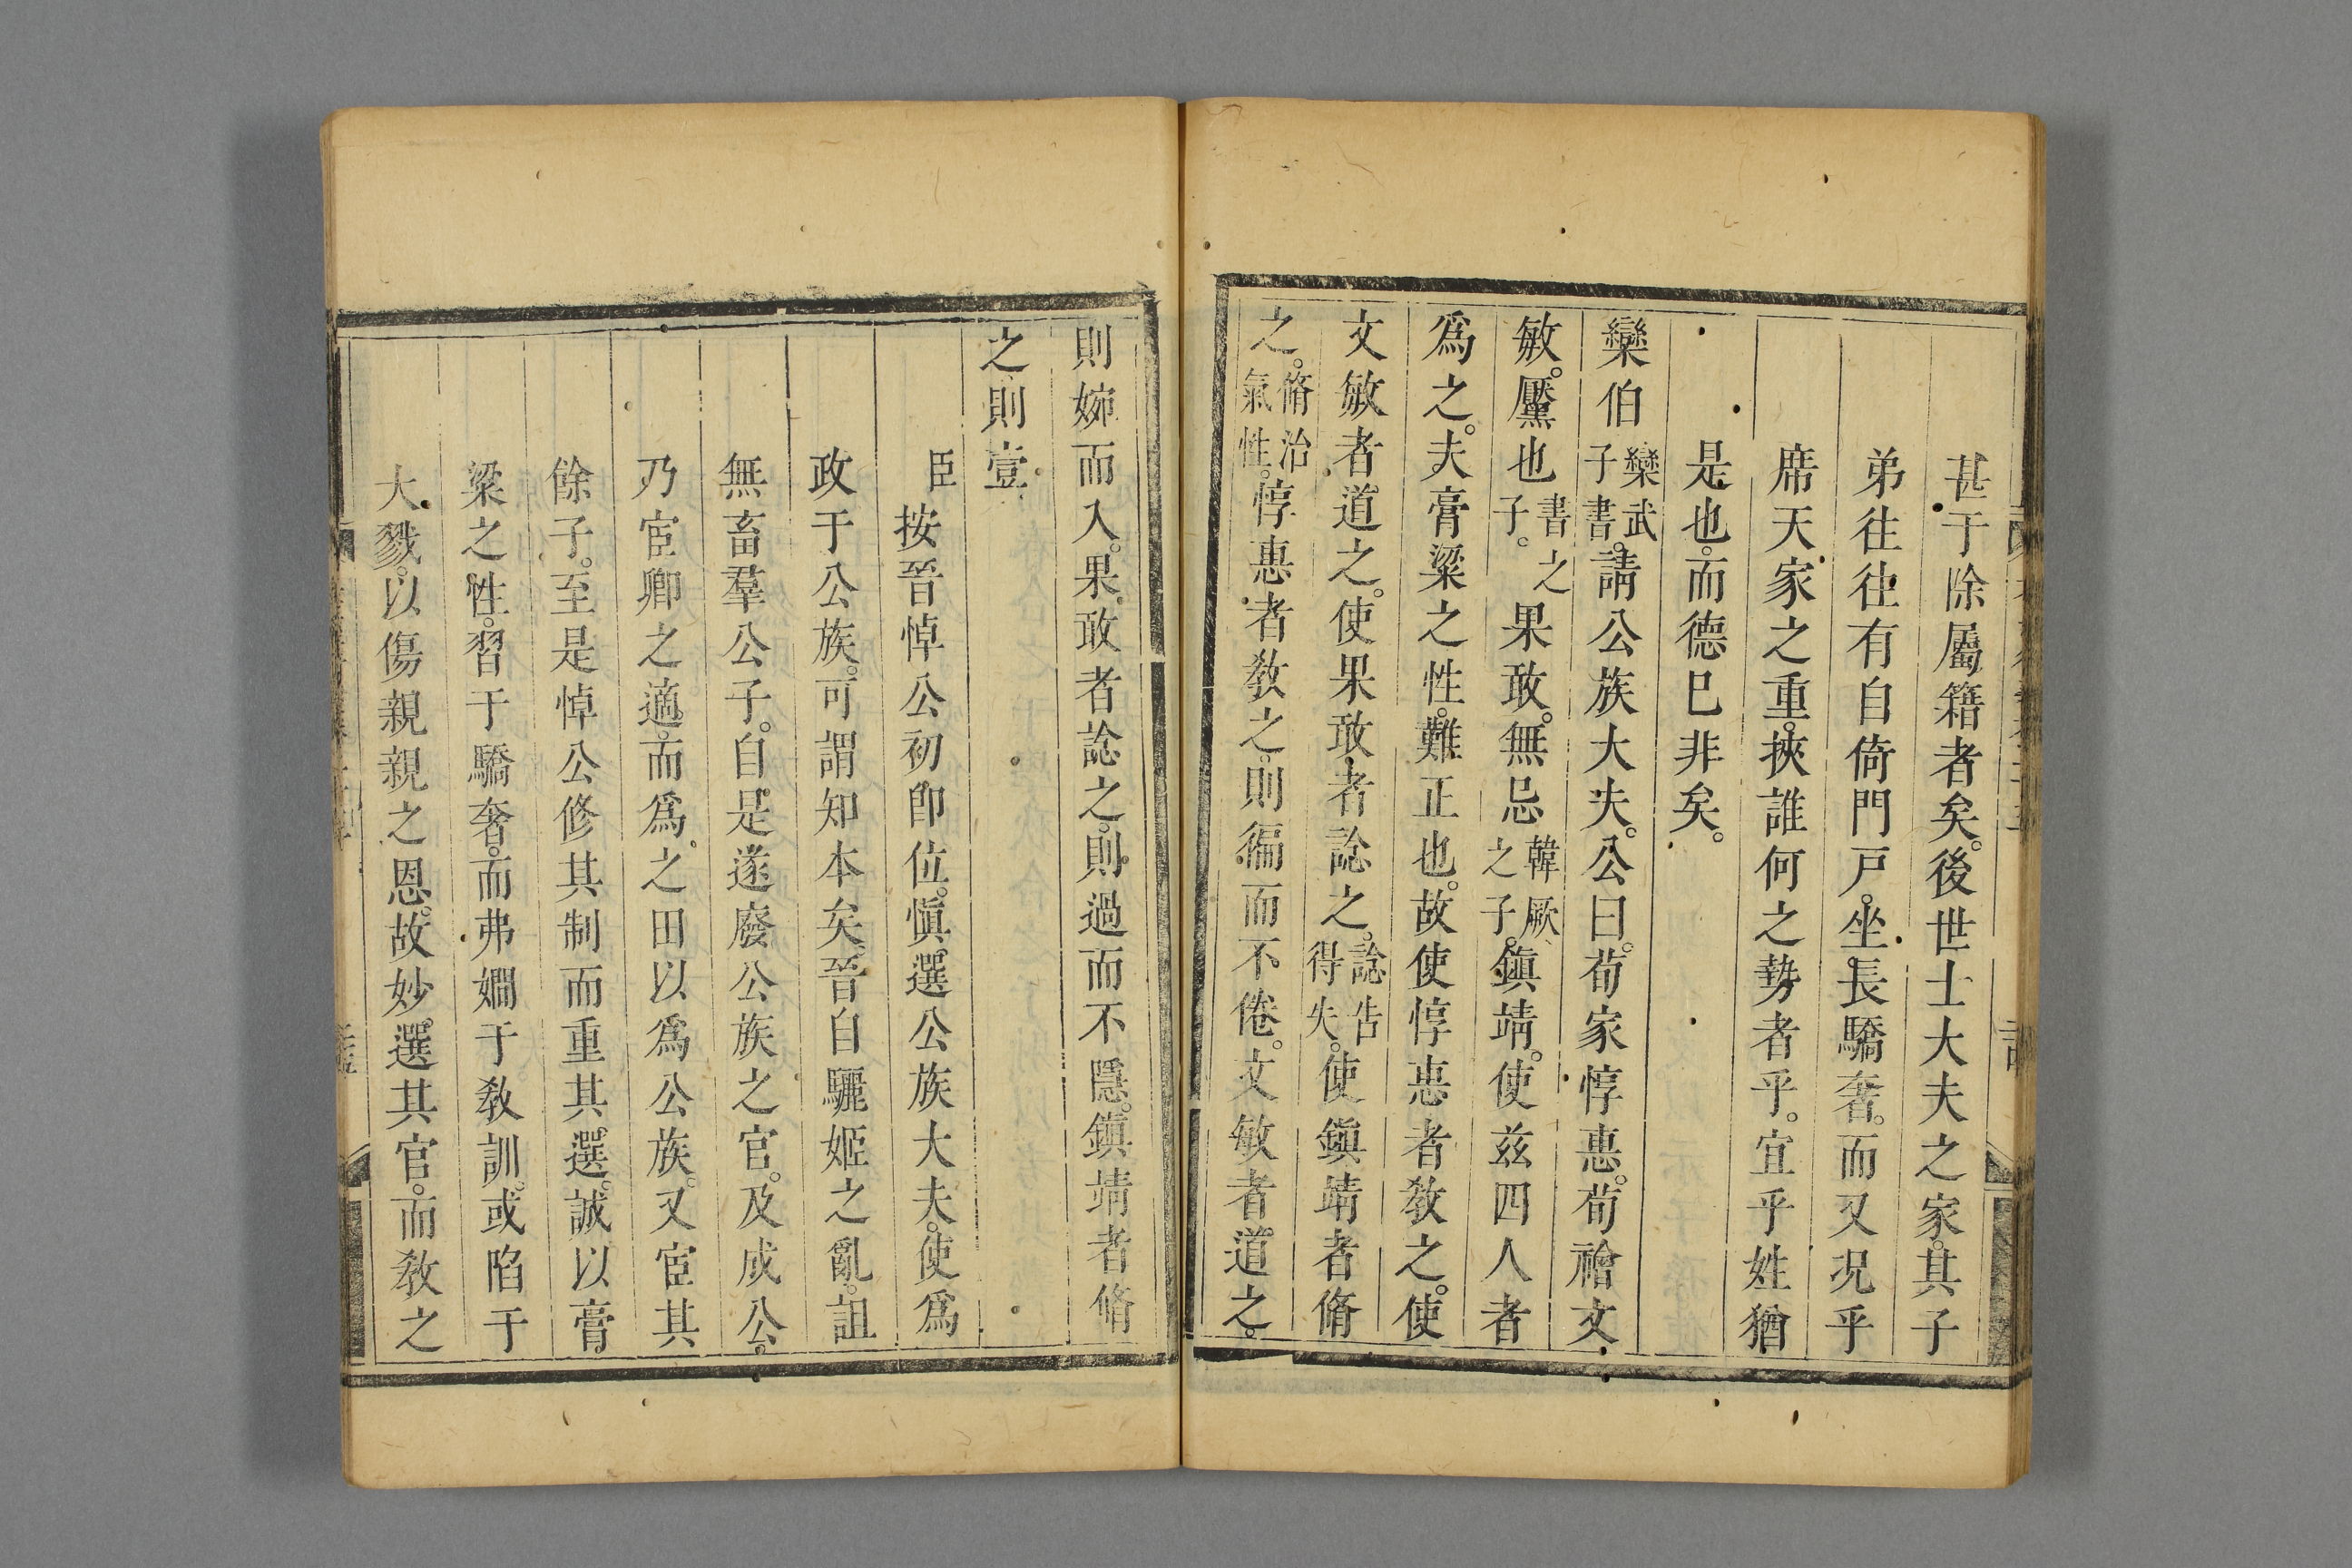 甚于除屬籍者矣。後世士大夫之家。其子
弟往往有自倚門戸。坐長驕奢。而又況乎
席天家之重。挾誰何之勢者乎。宜乎姓猶
是也。而德巳非矣。
欒伯欒武子書。請公族大夫。公曰。荀家惇惠。荀檜文
敏。黶也書之子。果敢。無忌韓厥之子。鎭靖。使兹四人者
爲之。夫膏粱之性。難正也。故使惇惠者敎之。使
文敏者道之。使果敢者諗之。諗告得失。使鎭靖者脩
之。脩治氣性。惇惠者敎之。則徧而不倦。文敏者道之。
則婉而入。果敢者諗之。則過而不隱。鎭靖者脩
之則壹
臣按晉悼公初卽位。愼選公族大夫。使爲
政于公族。可謂知本矣。晉自驪姬之亂。詛
無畜羣公子。自是遂廢公族之官。及成公。
乃宦卿之適。而爲之田以爲公族。又宦其
餘子。至是悼公修其制而重其選。誠以膏
粱之性。習于驕奢。而弗嫺于敎訓。或陷于
大戮。以傷親親之恩。故妙選其官。而敎之